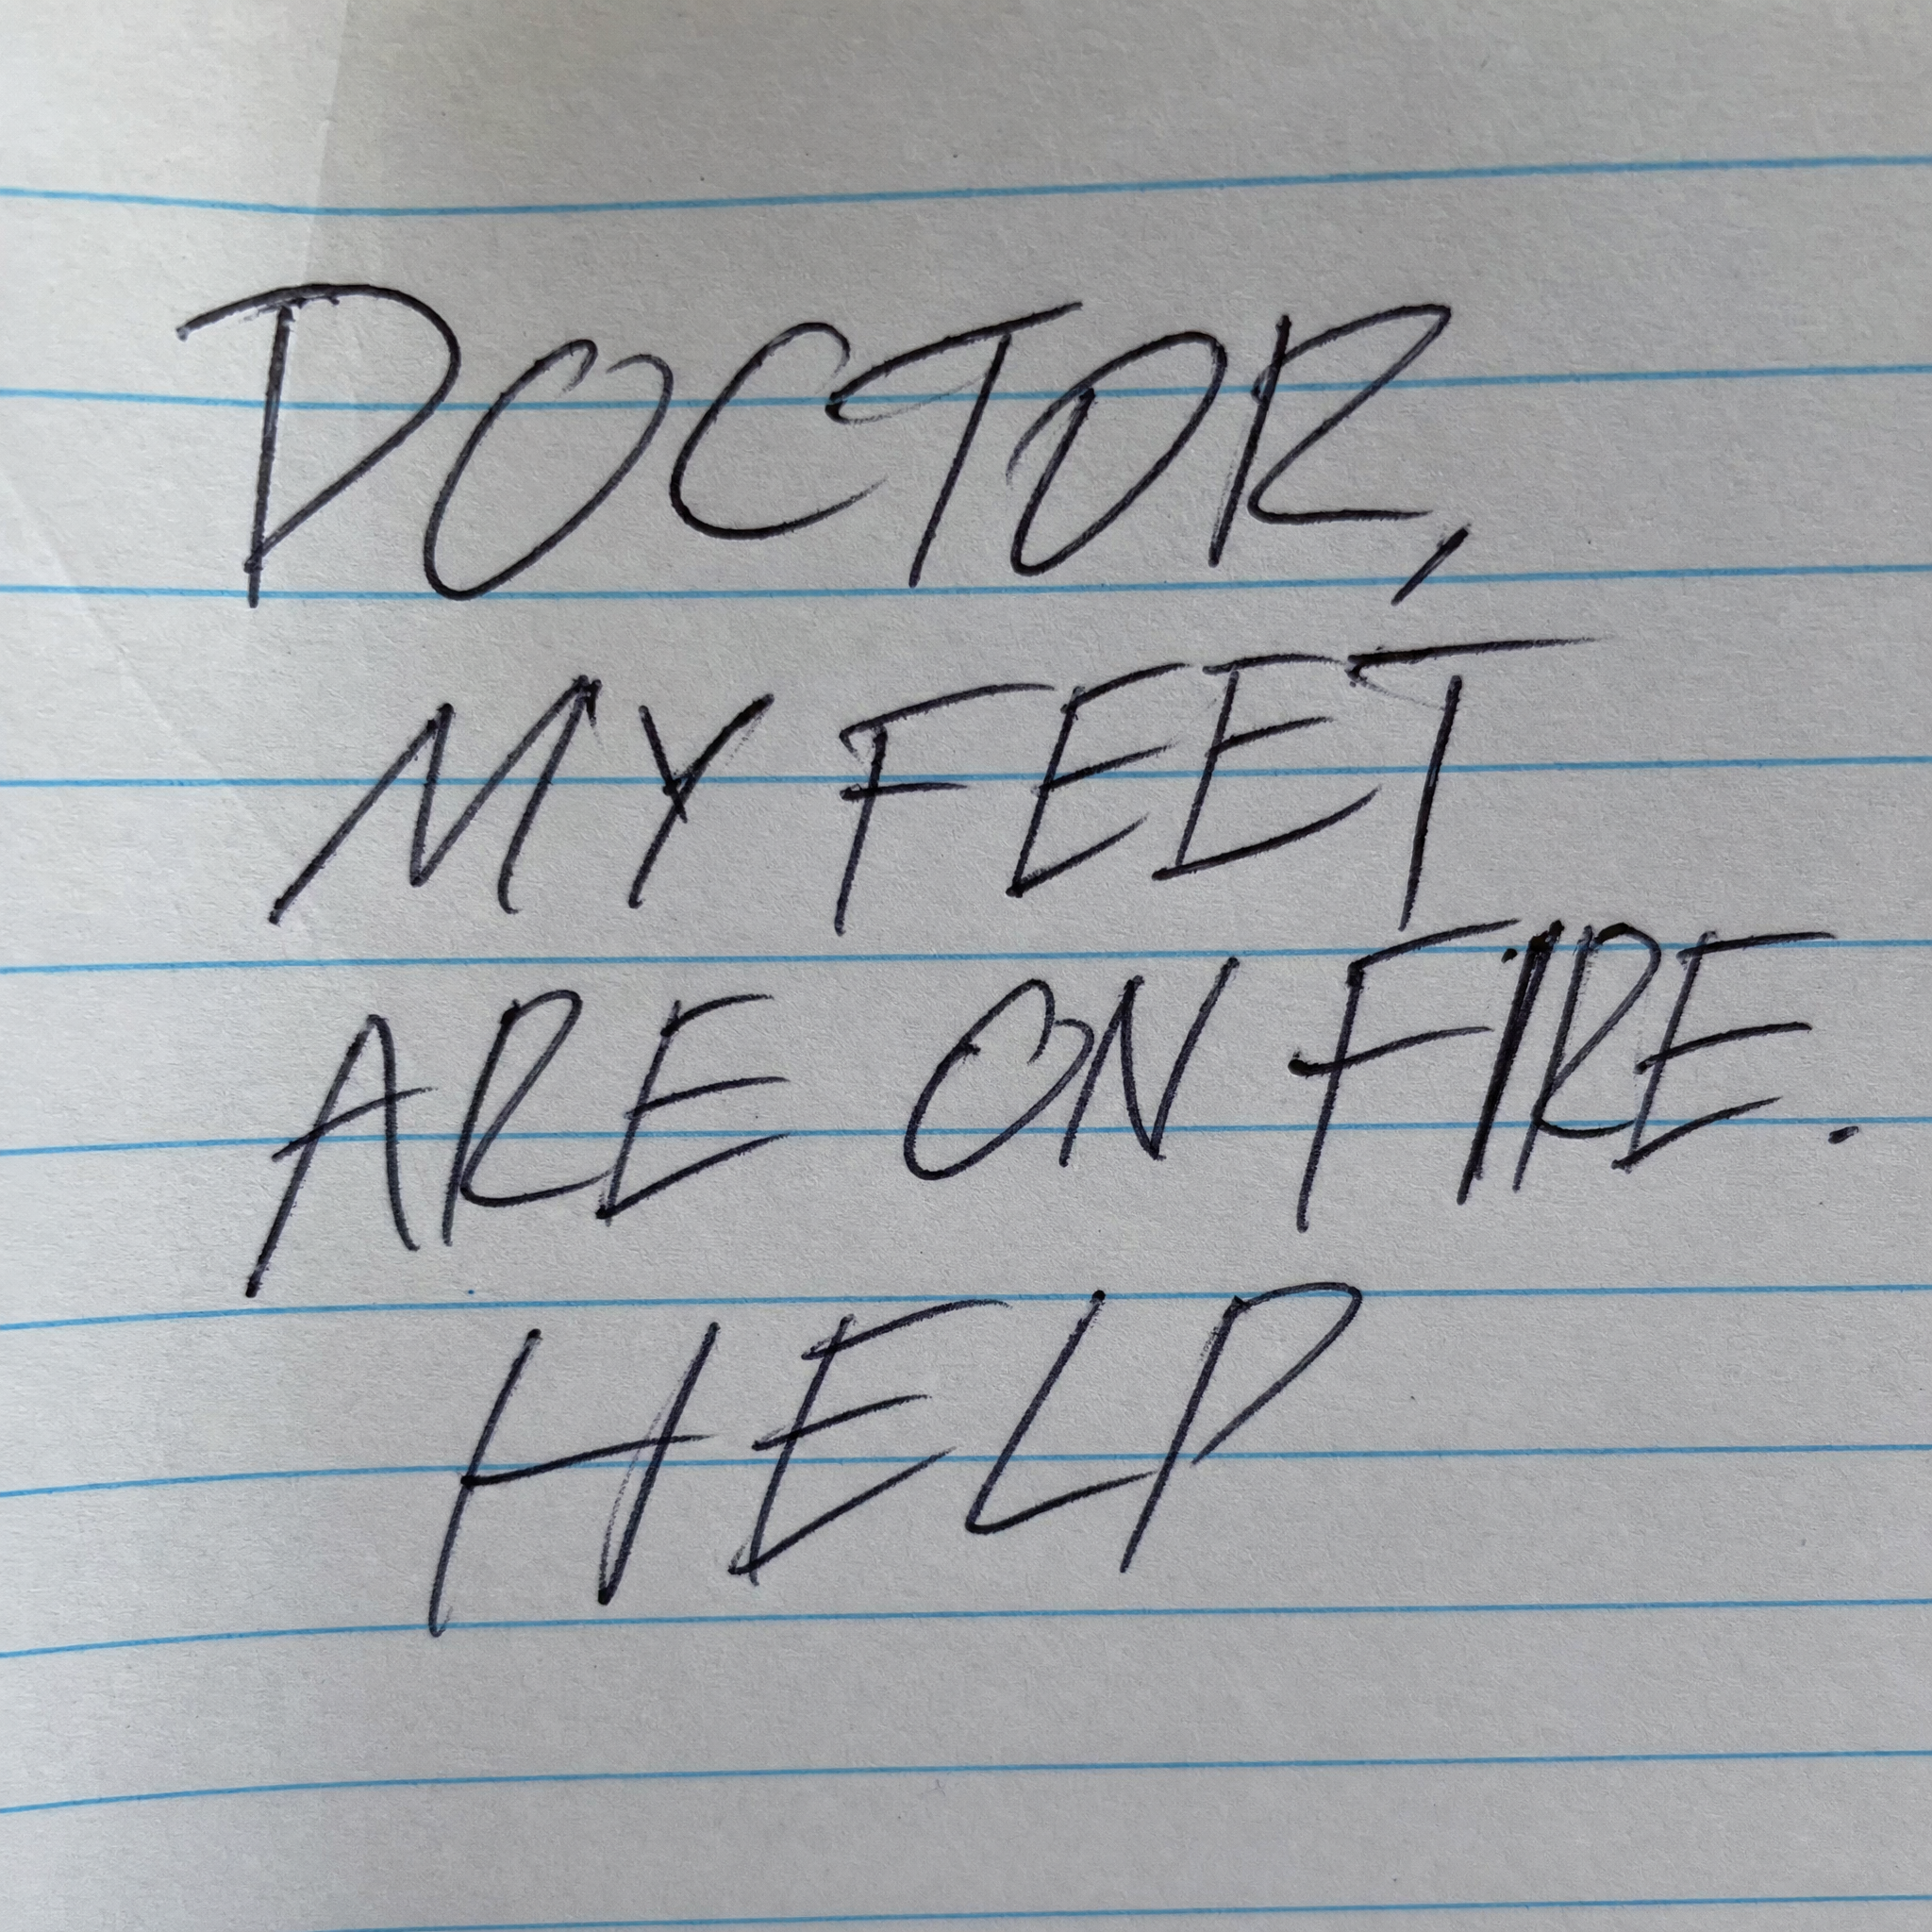 DOCTOR,
MY FEET
ARE ON FIRE.
HELP